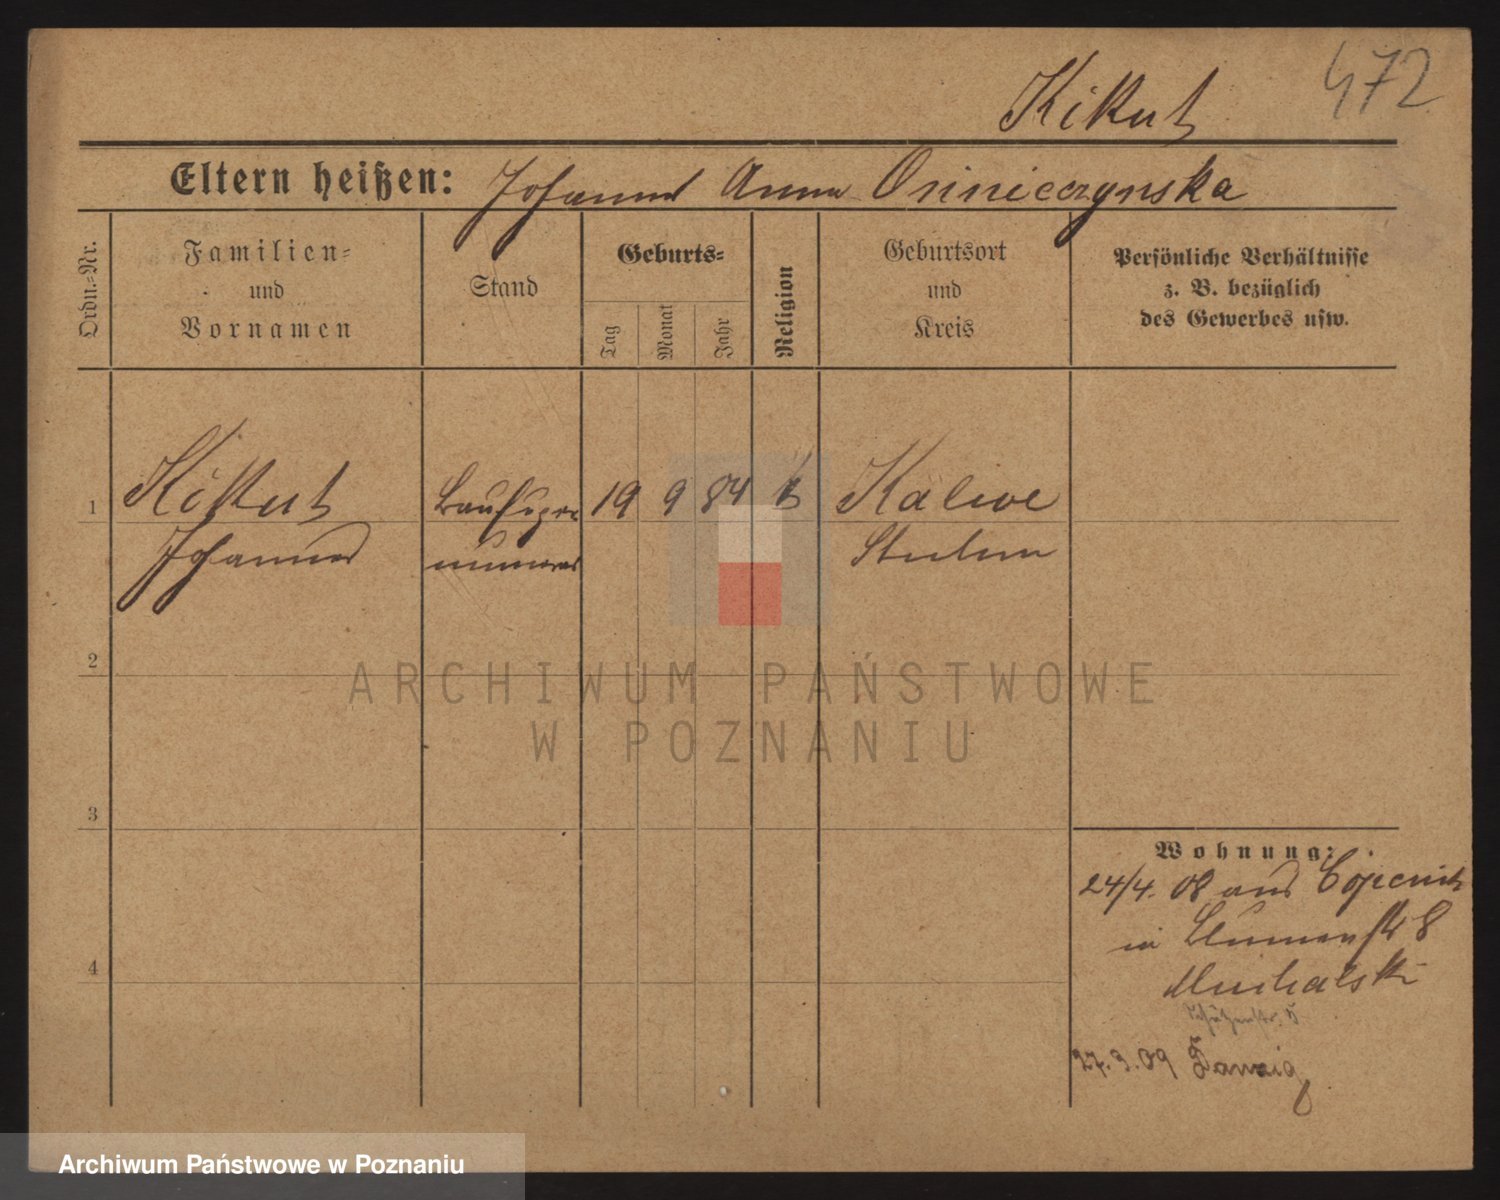 472
Kikut
Eltern heißen: Johann Anna Osinieczynska
Ordn.=Nr.
Familien=
und
Vornamen
Stand
Geburts=
Tag
Monat
Jahr
Religion
Geburtsort
und
Kreis
Persönliche Verhältnisse
z. B. bezüglich
des Gewerbes usw.
1
Kikut
Johannes
19 9 84 k
Kalwe
Stuhm
2
ARCHIWUM PAŃSTWOWE
W POZNANIU
3
Wohnung:
24/4. 08 aus Cöpenick
in Blumenstr 8
Michalski
Schützenstr.
4
27.3.09 Danzig
Archiwum Państwowe w Poznaniu